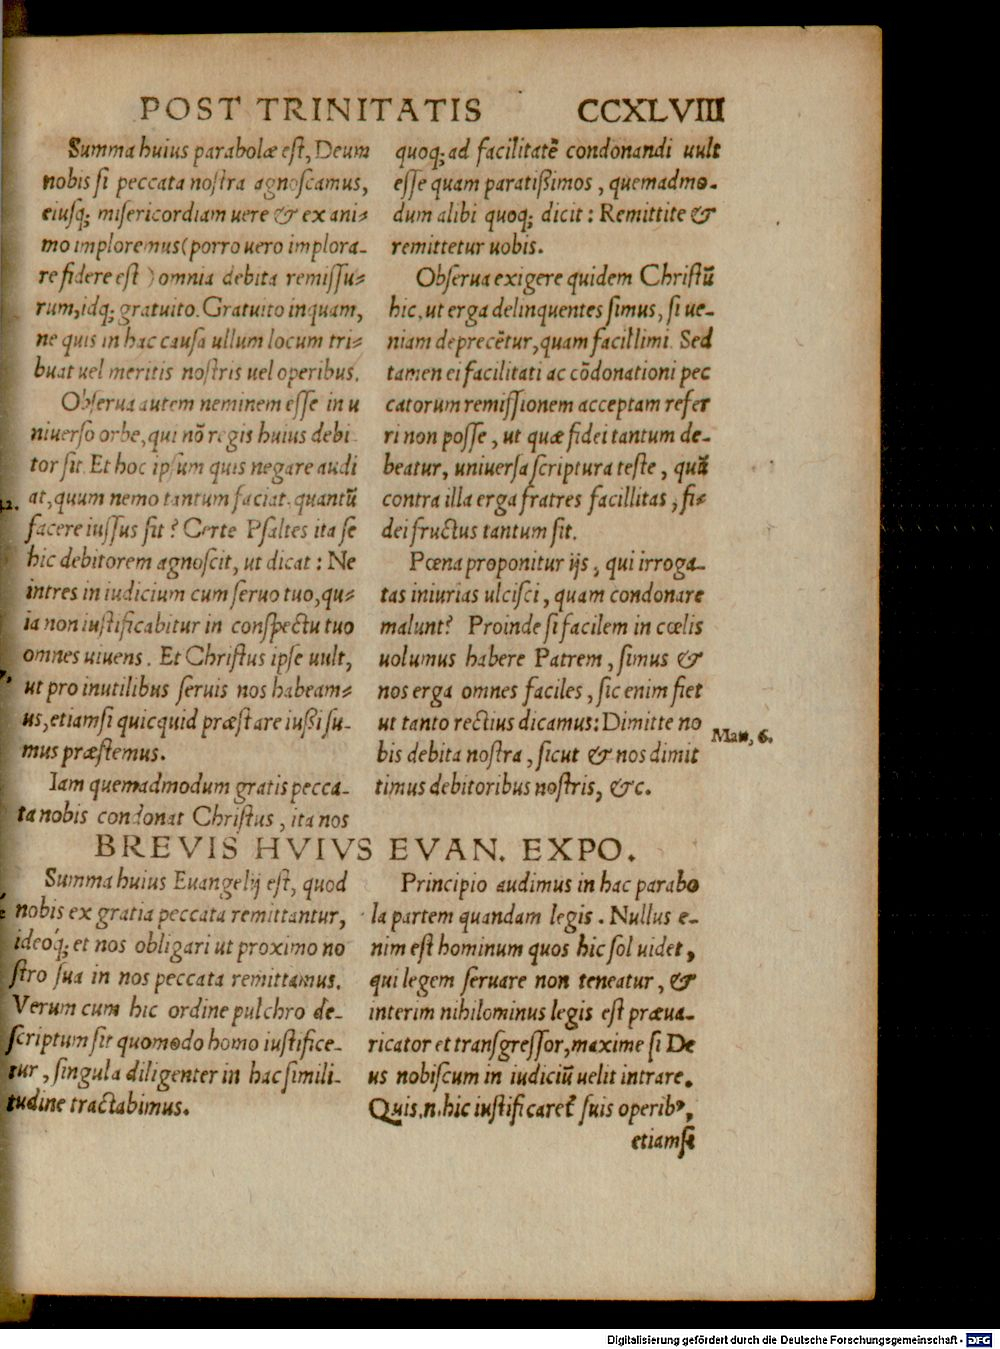 POST TRINITATIS CCXLVIII
Summa huius parabolæ est, Deum
nobis si peccata nostra agnoscamus,
eiusq; misericordiam uere & ex ani-
mo imploremus (porro uero implora-
re fidere est) omnia debita remissu-
rum, idq; gratuito. Gratuito inquam,
ne quis in hac causa ullum locum tri-
buat uel meritis nostris uel operibus.
Obserua autem neminem esse in u
niuerso orbe, qui nõ regis huius debi
tor sit. Et hoc ipsum quis negare audi
at, quum nemo tantum faciat, quantũ
facere iussus sit? Certe Psaltes ita se
hic debitorem agnoscit, ut dicat: Ne
intres in iudicium cum seruo tuo, qu-
ia non iustificabitur in conspectu tuo
omnes uiuens. Et Christus ipse uult,
ut pro inutilibus seruis nos habeam-
us, etiamsi quicquid præstare iußi su-
mus præstemus.
Iam quemadmodum gratis pecca-
ta nobis condonat Christus, ita nos
quoq; ad facilitatẽ condonandi uult
esse quam paratißimos, quemadmo-
dum alibi quoq; dicit: Remittite &
remittetur uobis.
Obserua exigere quidem Christũ
hic, ut erga delinquentes simus, si ue-
niam deprecẽtur, quam facillimi. Sed
tamen ei facilitati ac cõdonationi pec
catorum remissionem acceptam refer
ri non posse, ut quæ fidei tantum de-
beatur, uniuersa scriptura teste, quũ
contra illa erga fratres facillitas, fi-
dei fructus tantum sit.
Pœna proponitur ijs, qui irroga-
tas iniurias ulcisci, quam condonare
malunt? Proinde si facilem in cœlis
uolumus habere Patrem, simus &
nos erga omnes faciles, sic enim fiet
ut tanto rectius dicamus: Dimitte no
bis debita nostra, sicut & nos dimit
timus debitoribus nostris, &c.
Mat, 6.
BREVIS HVIVS EVAN. EXPO.
Summa huius Euangelij est, quod
nobis ex gratia peccata remittantur,
ideoq́; et nos obligari ut proximo no
stro sua in nos peccata remittamus.
Verum cum hic ordine pulchro de-
scriptum sit quomodo homo iustifice-
tur, singula diligenter in hac simili-
tudine tractabimus.
Principio audimus in hac parabo
la partem quandam legis. Nullus e-
nim est hominum quos hic sol uidet,
qui legem seruare non teneatur, &
interim nihilominus legis est præua-
ricator et transgressor, maxime si De
us nobiscum in iudiciũ uelit intrare.
Quis.n.hic iustificaret̃ suis operibꝰ,
etiamsi
Digitalisierung gefördert durch die Deutsche Forschungsgemeinschaft - DFG